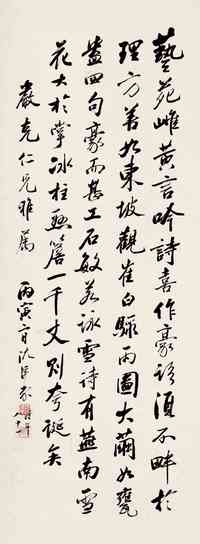 藝苑雌黃言吟詩喜作豪語須不畔於
理方善如東坡觀崔白驟雨圖大繭如甕
盎四句豪而甚工石敏若詠雪詩有燕南雪
花大於掌冰柱懸簷一千丈則夸誕矣
嚴克仁兄雅屬
丙寅